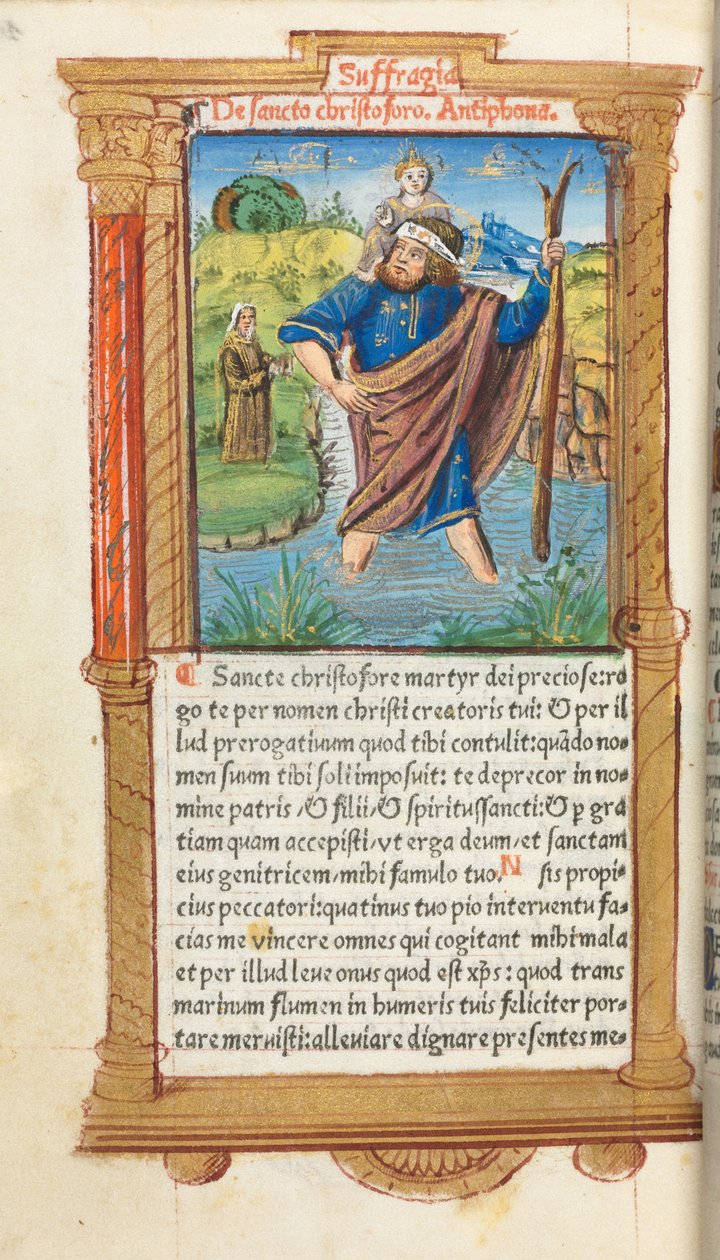 Suffragia
De sancto christoforo. Antiphona.
¶ Sancte christofore martyr dei preciose:ro
go te per nomen christi creatoris tui: & per il
lud prerogatiuum quod tibi contulit:quādo no-
men suum tibi soli imposuit: te deprecor in no-
mine patris / & filii / & spiritussancti: & ꝑ gra
tiam quam accepisti/vt erga deum/et sanctam
eius genitricem/mihi famulo tuo. N sis propi-
cius peccatori:quatinus tuo pio interuentu fa-
cias me vincere omnes qui cogitant mihi mala
et per illud leue onus quod est xp̄s : quod trans
marinum flumen in humeris tuis feliciter por-
tare meruisti:alleuiare dignare presentes me-